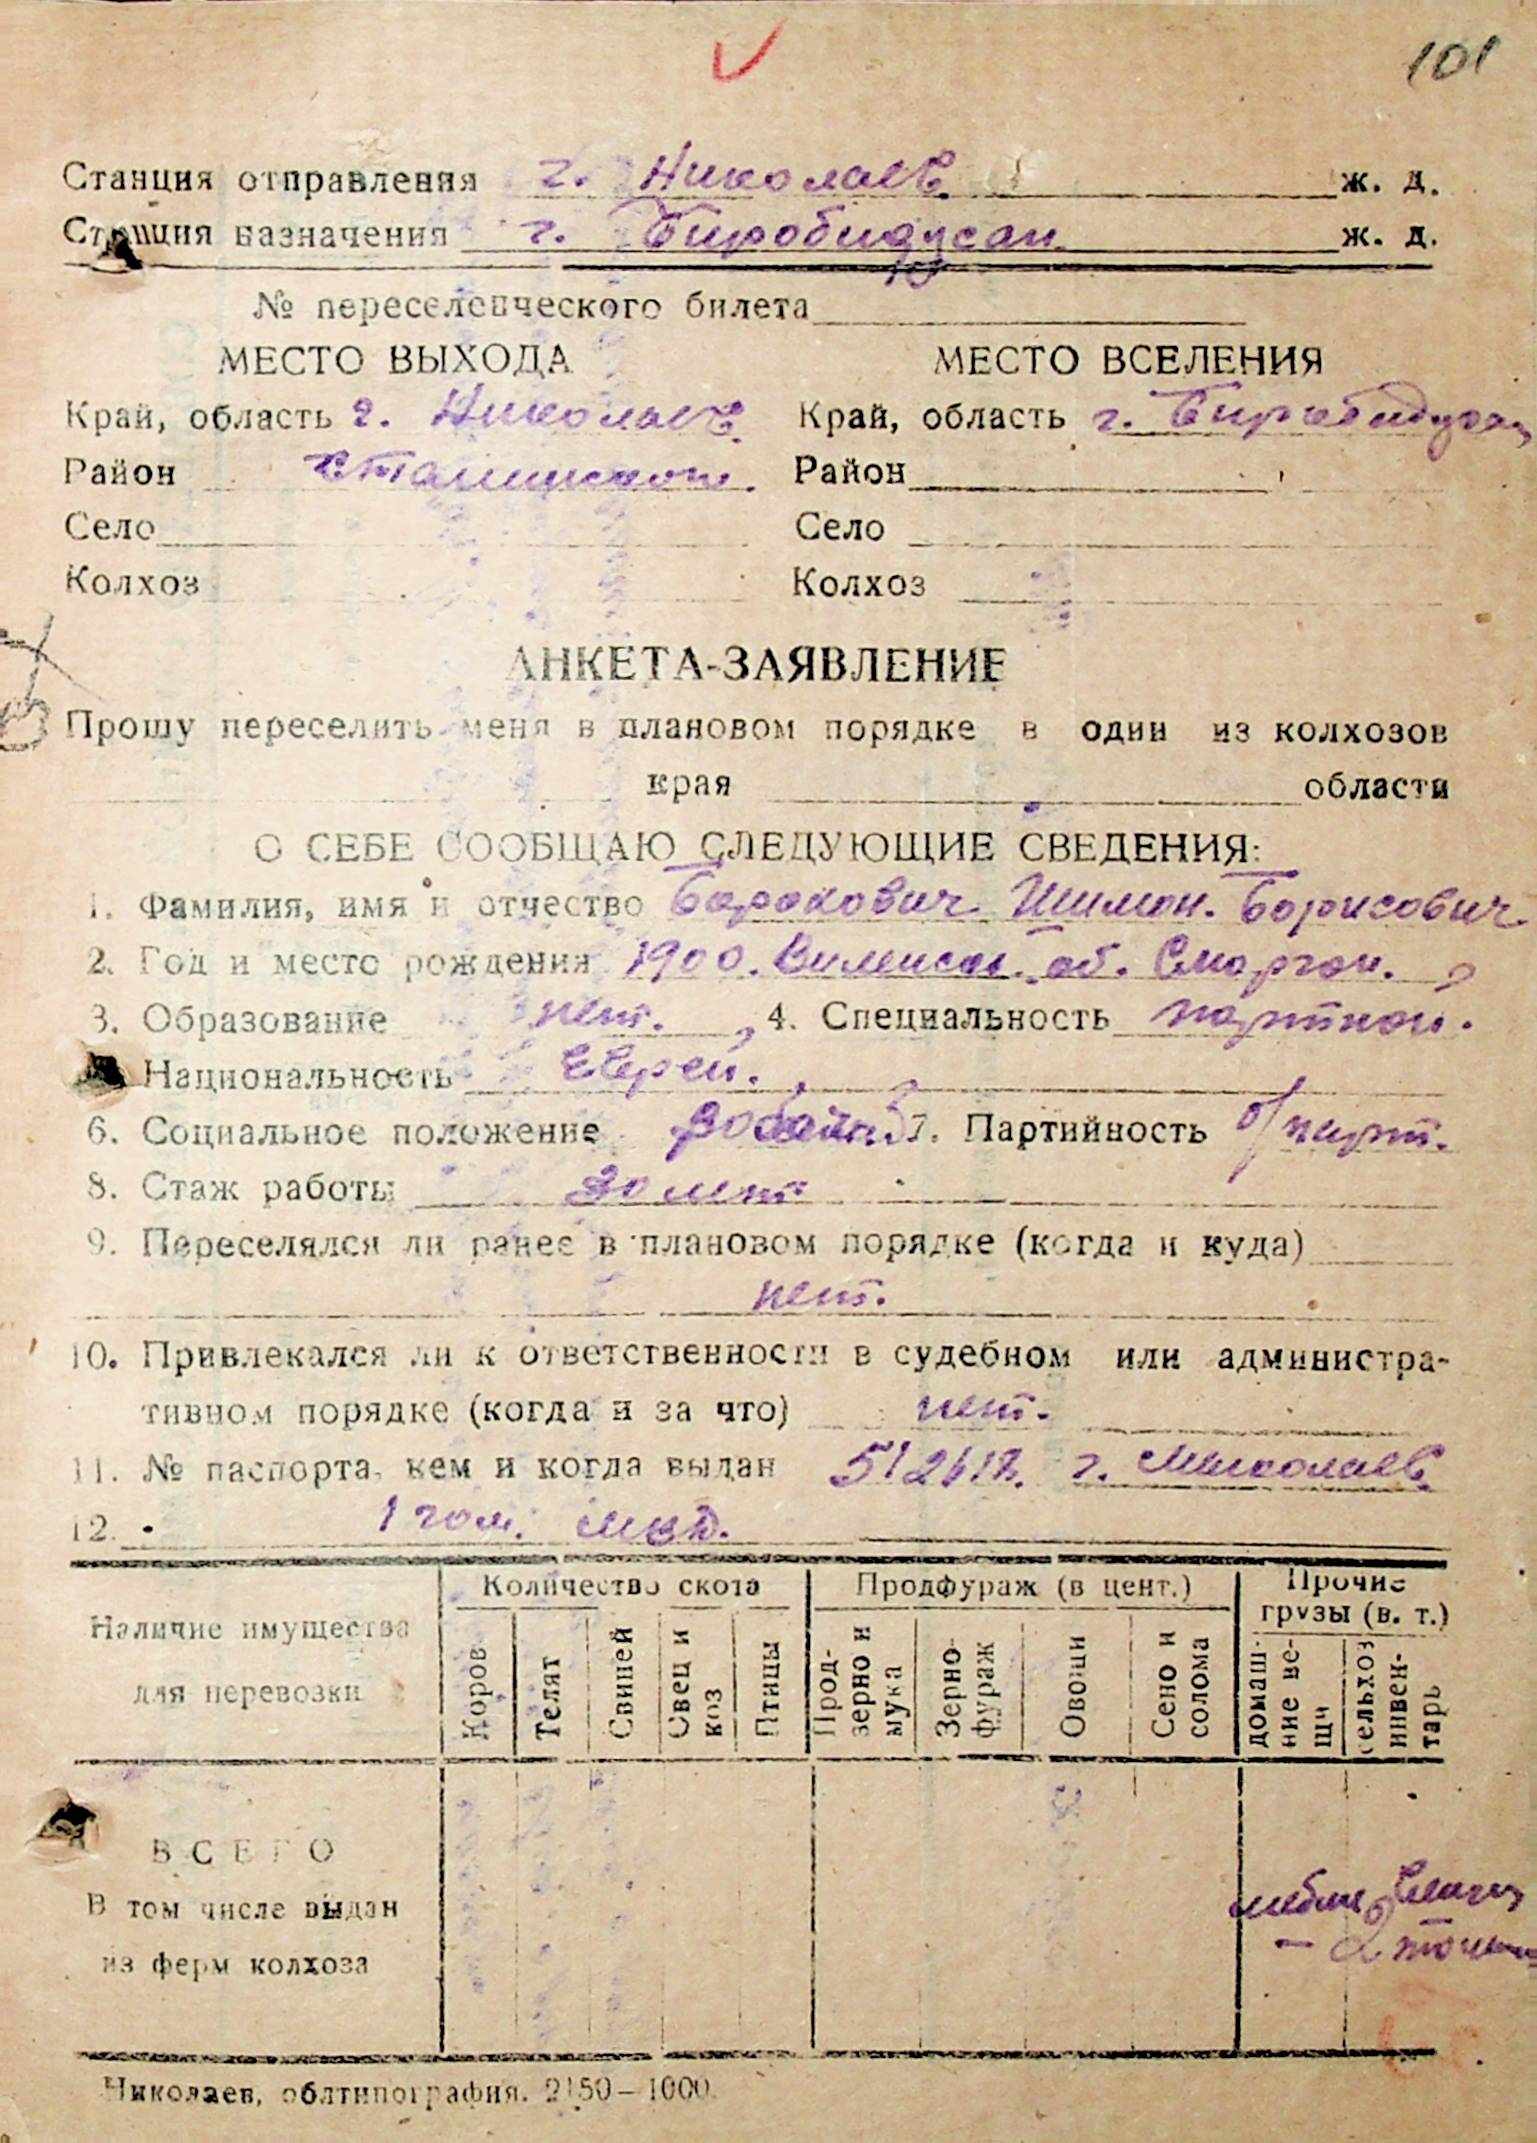 101
Станция отправления г. Николаев. ж. д.
Станция назначения г. Биробиджан ж. д.
№ переселенческого билета
МЕСТО ВЫХОДА МЕСТО ВСЕЛЕНИЯ
Край, область г. Николаев. Край, область г. Биробиджан
Район Сталинского. Район
Село Село
Колхоз Колхоз
АНКЕТА-ЗАЯВЛЕНИЕ
Прошу переселить меня в плановом порядке в один из колхозов
края области
О СЕБЕ СООБЩАЮ СЛЕДУЮЩИЕ СВЕДЕНИЯ:
1. Фамилия, имя и отчество Боракович Шимон. Борисович
2. Год и место рождения 1900. Виленск. об. Сморгон.
3. Образование нет. 4. Специальность портной.
Национальность Еврей.
6. Социальное положение рабочий 7. Партийность б/парт.
8. Стаж работы 30 лет
9. Переселялся ли ранее в плановом порядке (когда и куда)
нет.
10. Привлекался ли к ответственности в судебном или администра-
тивном порядке (когда и за что) нет.
11. № паспорта, кем и когда выдан г. Николаев.
12. 1 гом. МВД.
Наличие имущества для перевозки
Количество скота Продфураж (в цент.) Прочие грузы (в. т.)
Коров Телят Свиней Овец и коз Птицы Прод-зерно и мука Зерно-фураж Овощи Сено и солома домаш-ние ве-щи сельхоз инвен-тарь
ВСЕГО
В том числе выдан
из ферм колхоза
– 2 тонны
Николаев, облтипография. 2150–1000.